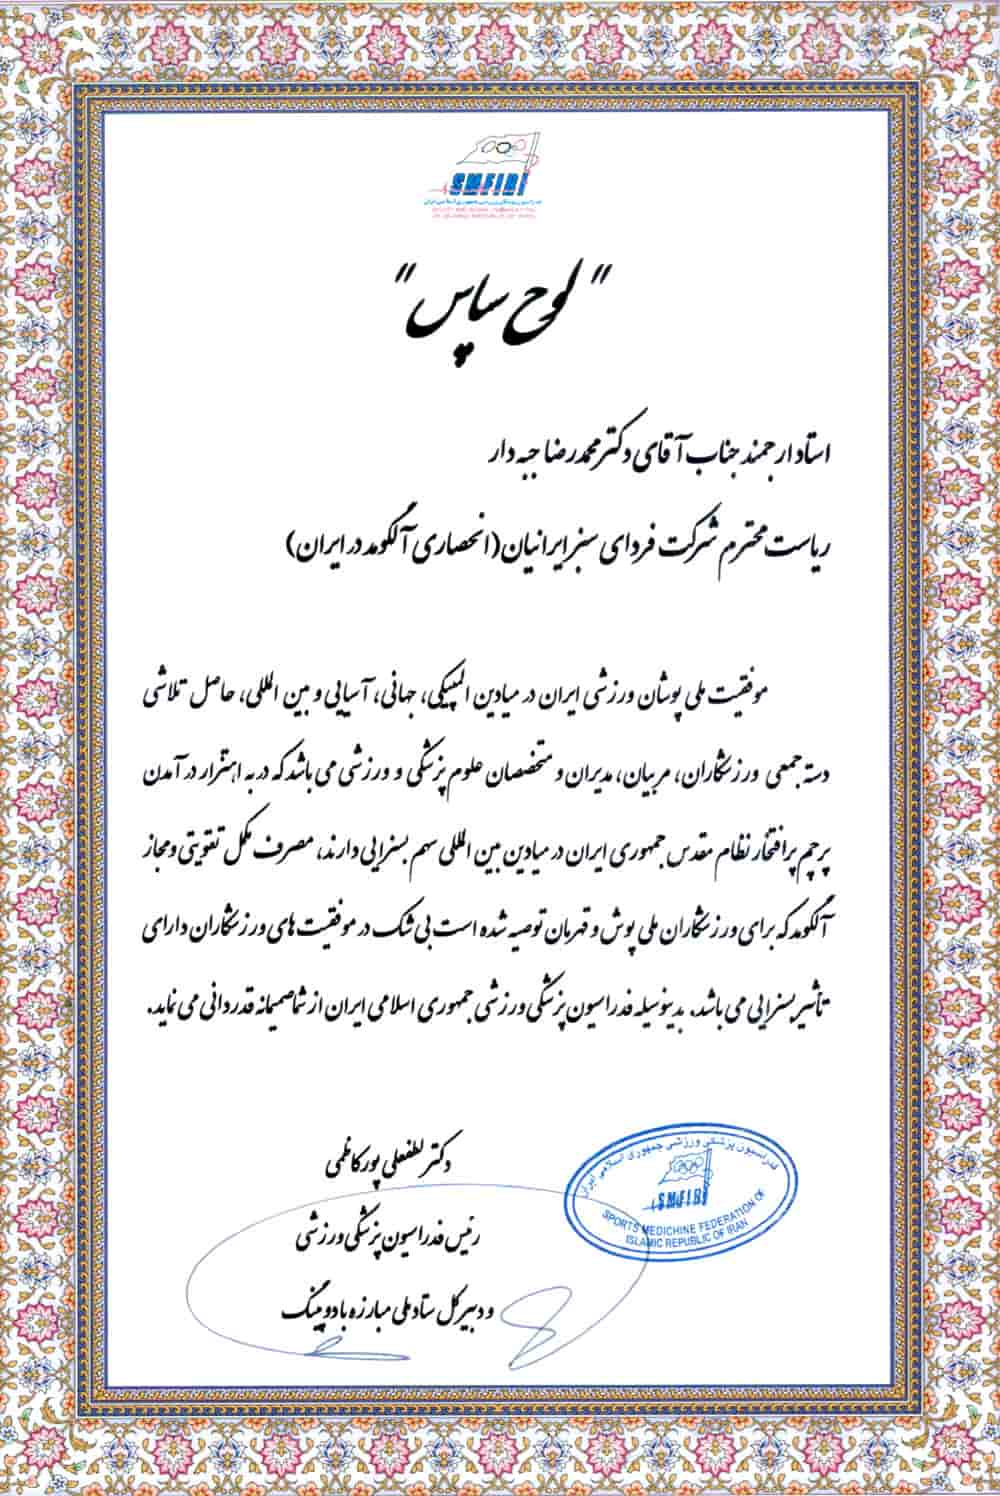 SMFIRI
فدراسیون پزشکی ورزشی جمهوری اسلامی ایران
SPORTS MEDICHINE FEDERATION
OF ISLAMIC REPUBLIC OF IRAN
"لوح سپاس"
استاد ارجمند جناب آقای دکتر محمدرضا جبه دار
ریاست محترم شرکت فردای سبز ایرانیان(انحصاری آلگومد در ایران)
موفقیت ملی پوشان ورزشی ایران در میادین المپیکی، جهانی، آسیایی و بین المللی، حاصل تلاشی
دسته جمعی ورزشکاران، مربیان، مدیران و متخصصان علوم پزشکی و ورزشی می باشد که در به اهتزار در آمدن
پرچم پرافتخار نظام مقدس جمهوری ایران در میادین بین المللی سهم بسزایی دارند، مصرف مکمل تقویتی و مجاز
آلگومد که برای ورزشکاران ملی پوش و قهرمان توصیه شده است بی شک در موفقیت های ورزشکاران دارای
تأثیر بسزایی می باشد. بدینوسیله فدراسیون پزشکی ورزشی جمهوری اسلامی ایران از شما صمیمانه قدردانی می نماید.
دکتر لطفعلی پورکاظمی
رئیس فدراسیون پزشکی ورزشی
و دبیر کل ستاد ملی مبارزه با دوپینگ
فدراسیون پزشکی ورزشی جمهوری اسلامی ایران
SMFIRI
SPORTS MEDICHINE FEDERATION OF
ISLAMIC REPUBLIC OF IRAN